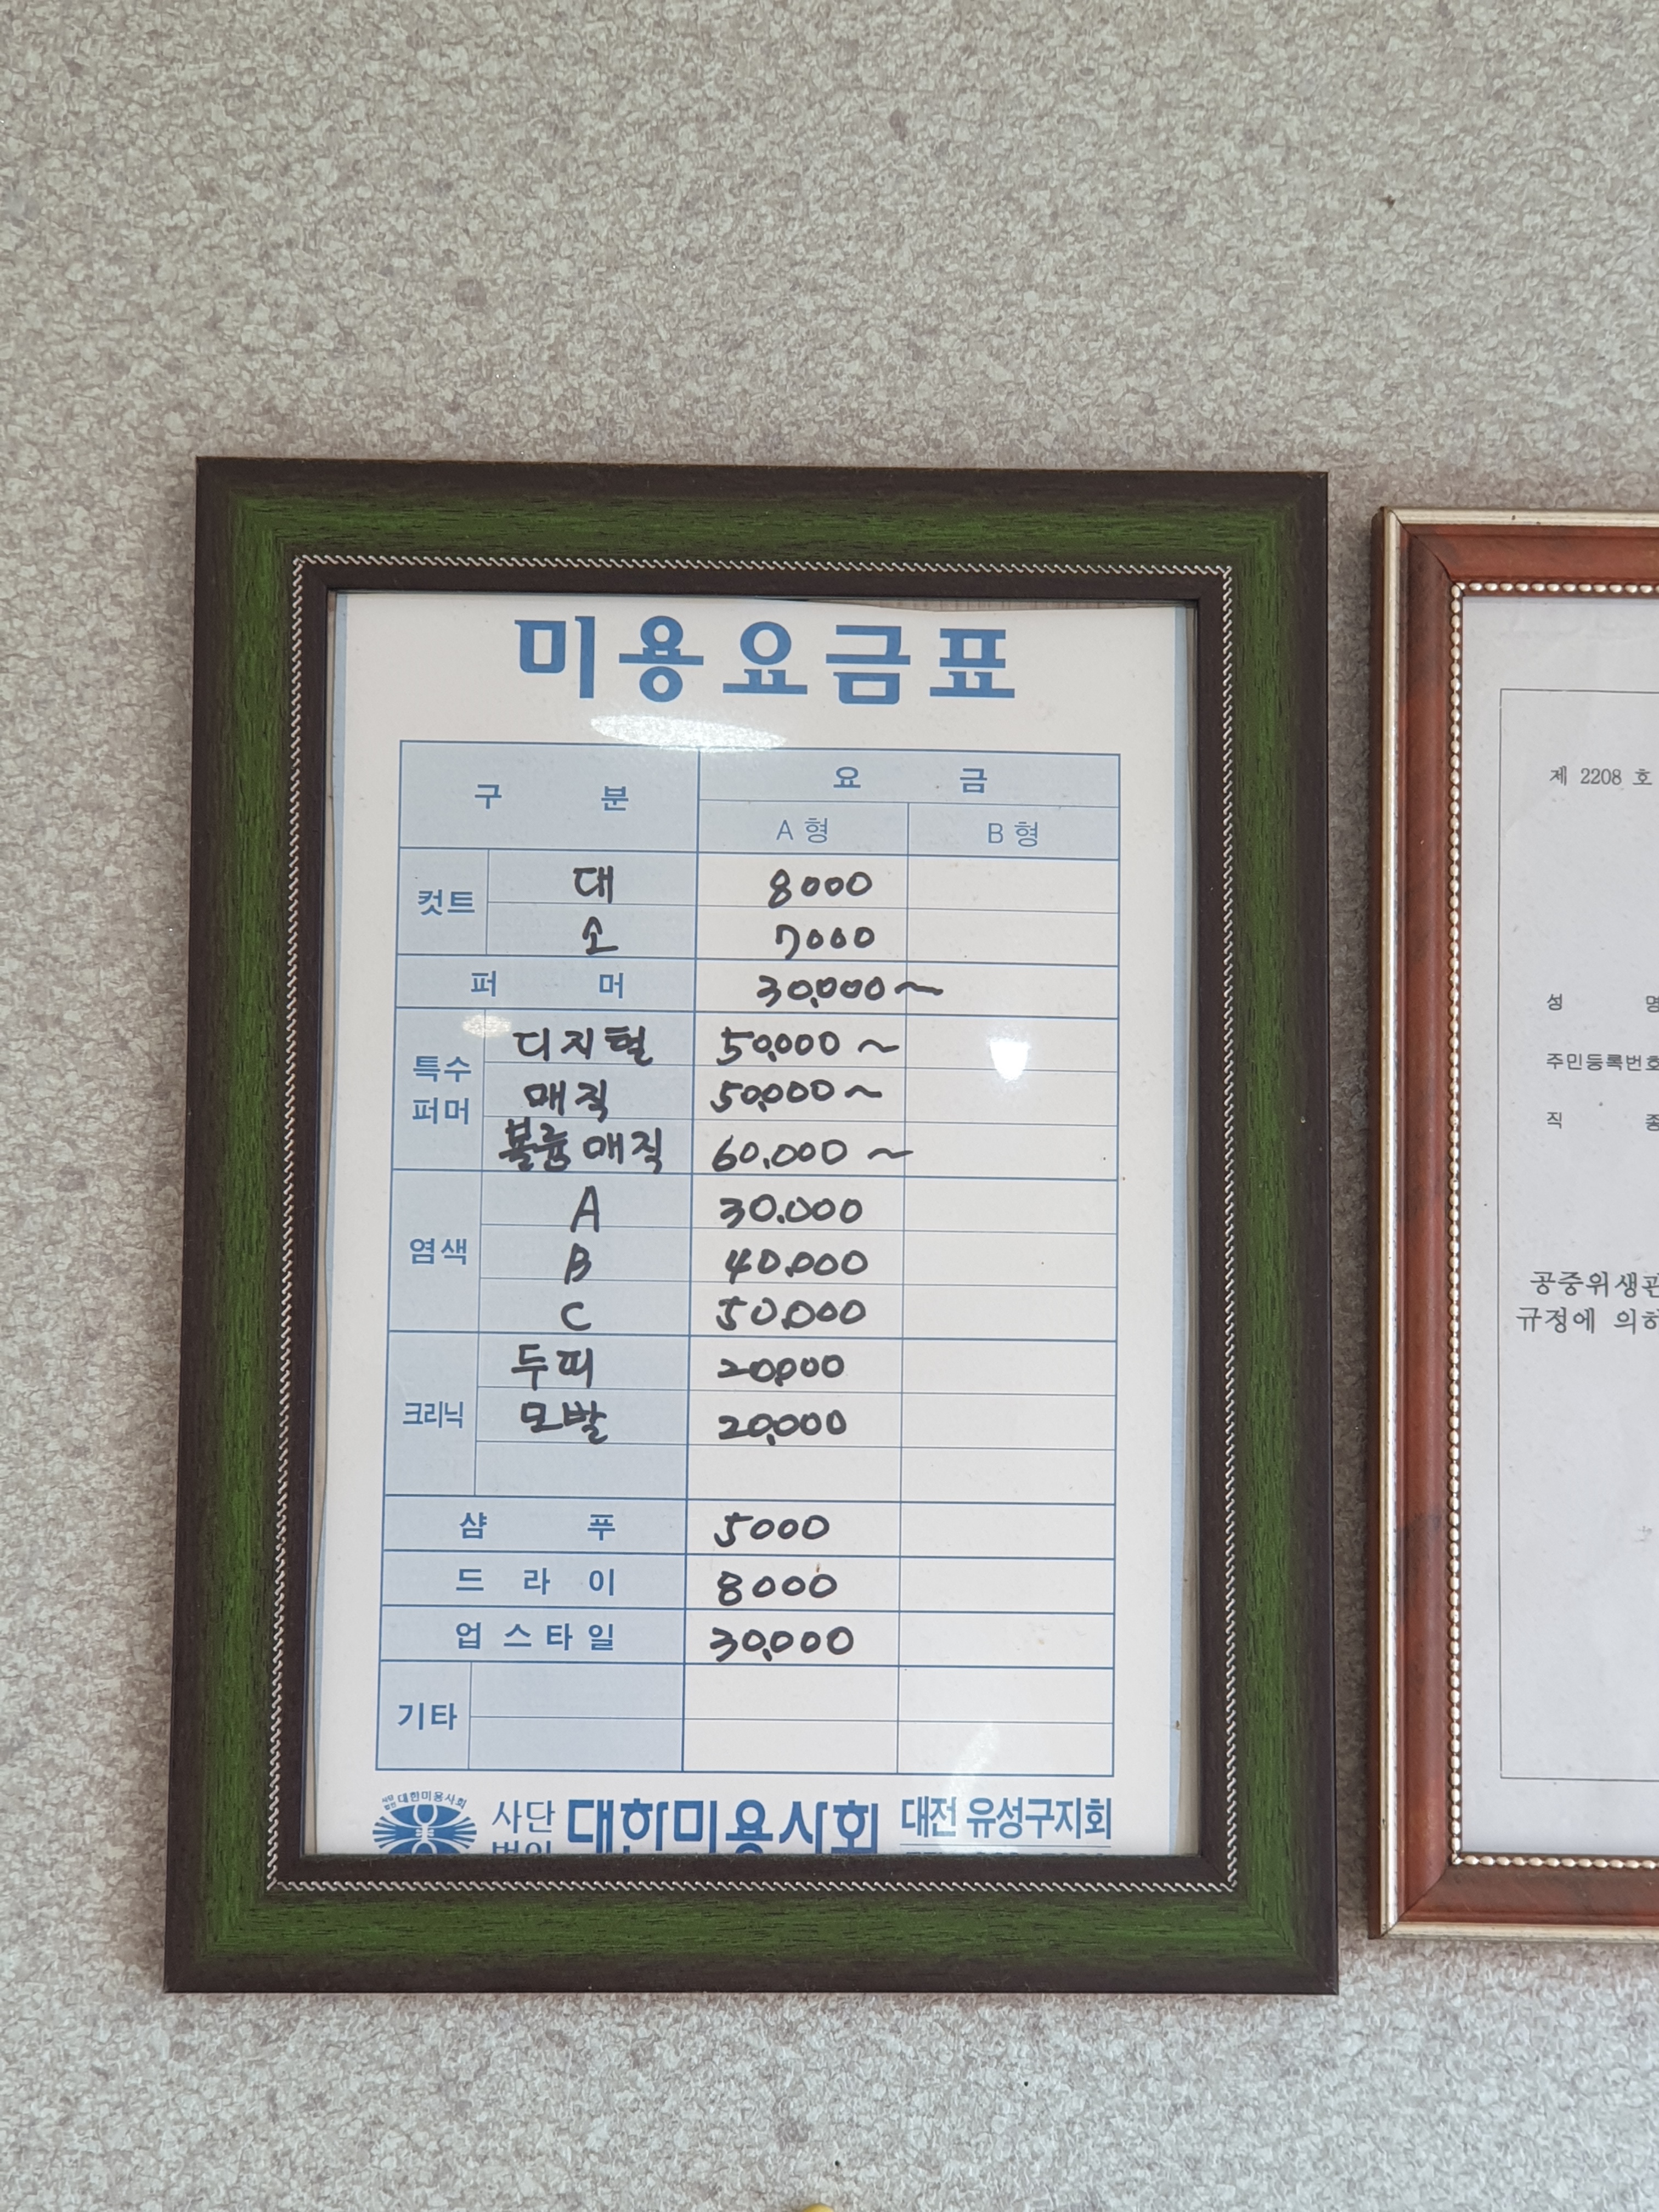 미용요금표
구 분 요 금
A 형 B 형
컷트 대 8000
소 7000
퍼 머 30,000~
특수 퍼머 디지털 50,000 ~
매직 50,000 ~
볼륨매직 60,000 ~
염색 A 30.000
B 40,000
C 50,000
크리닉 두피 20,000
모발 20,000
샴 푸 5000
드 라 이 8000
업 스 타 일 30,000
기타
사단법인 대한미용사회
사단 법인 대한미용사회 대전 유성구지회
제 2208 호
성 명
주민등록번호
직 종
공중위생관
규정에 의하